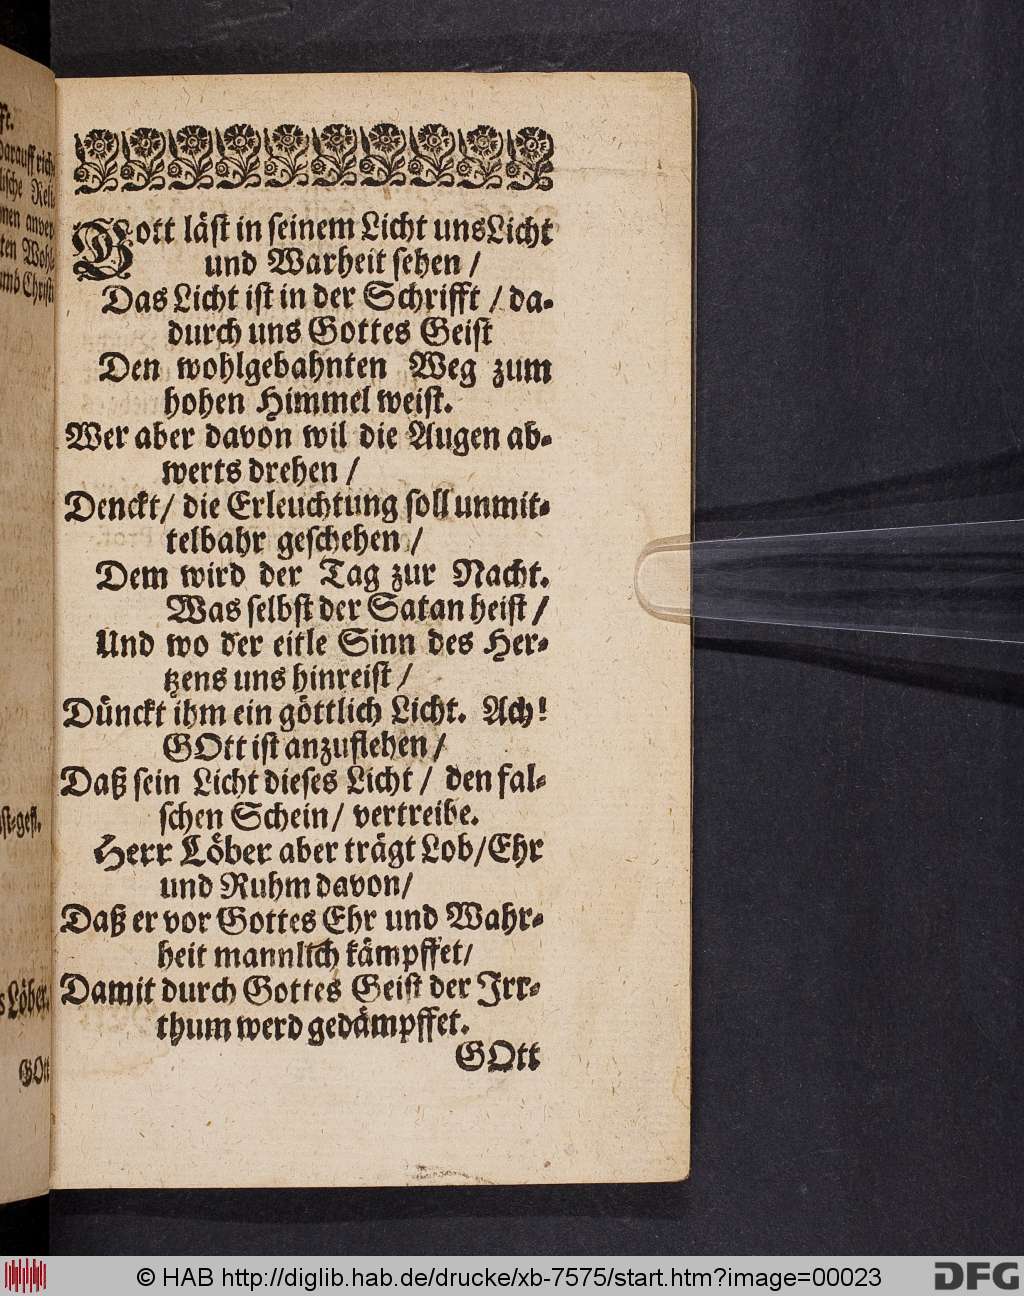 ft.
darauff rich-
lische Reli-
nen anver-
ten Wohl-
umb Christi
st-gefl.
s Löber.
GOtt
Gott läst in seinem Licht uns Licht
und Warheit sehen /
Das Licht ist in der Schrifft / da-
durch uns Gottes Geist
Den wohlgebahnten Weg zum
hohen Himmel weist.
Wer aber davon wil die Augen ab-
werts drehen /
Denckt / die Erleuchtung soll unmit-
telbahr geschehen /
Dem wird der Tag zur Nacht.
Was selbst der Satan heist /
Und wo der eitle Sinn des Her-
tzens uns hinreist /
Dünckt ihm ein göttlich Licht. Ach!
GOtt ist anzuflehen /
Daß sein Licht dieses Licht / den fal-
schen Schein / vertreibe.
Herr Löber aber trägt Lob / Ehr
und Ruhm davon /
Daß er vor Gottes Ehr und Wahr-
heit mannlich kämpffet /
Damit durch Gottes Geist der Irr-
thum werd gedämpffet.
GOtt
© HAB http://diglib.hab.de/drucke/xb-7575/start.htm?image=00023
DFG